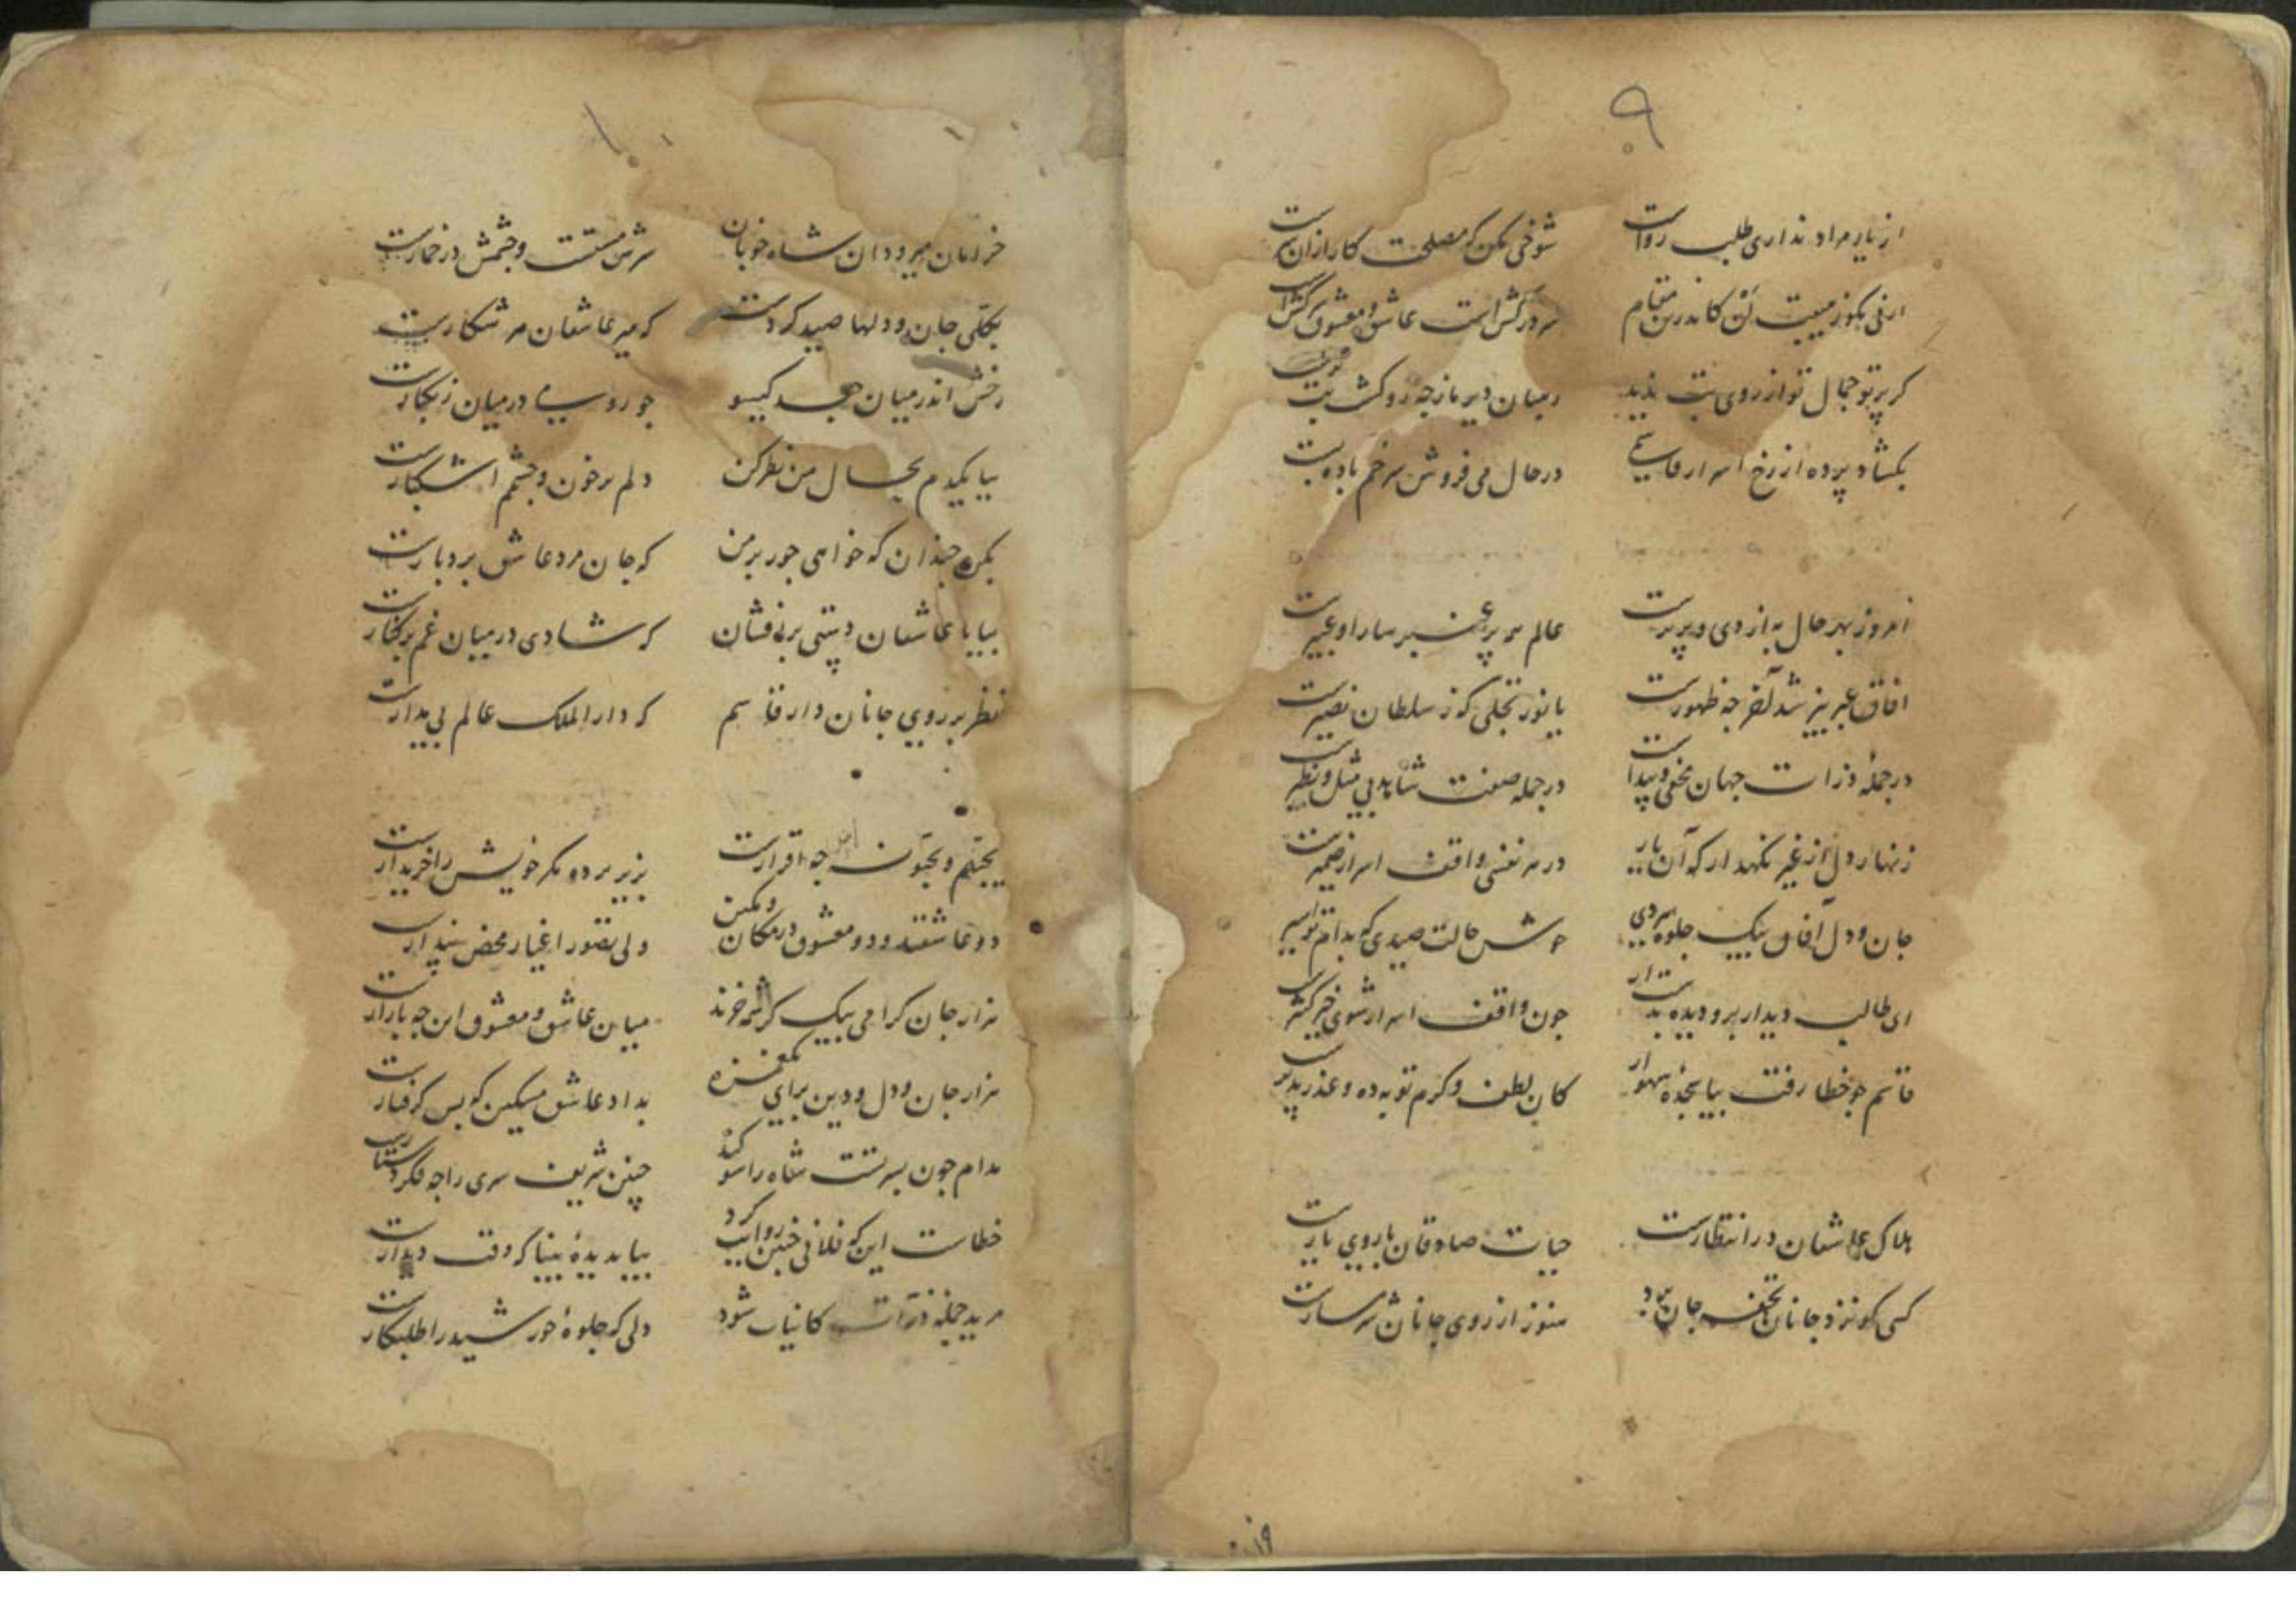 ۹
از یار مراد نداری طلب رواست شوخی مکن که مصلحت کار ازان سرست
ارنی مگوز هیبت لن کاندرین مقام
کر پرتو جمال تو از روی بت بدید رهبان دیر باز چه رو
بکشاد پرده از رخ اسرار قاسمی در حال می فروش سر خم باده بست
امروز بهر حال به از دی و پریرست عالم همه پر عنبر سارا و عبیرست
افاق عبر بیز شد آخر چه ظهورست یا نور تجلی که ز سلطان نصیرست
در جملهٔ ذرات جهان مخفی و پیداست در جمله صفت شاهد بی مثل و نظیرست
زنهار دل از غیر نکهدار که آن یار در هر نفسی واقف اسرار ضمیرست
جان و دل آفاق بیک جلوه خوش حالت صیدی که بدام تو اسیرست
ای طالب دیدار برو دیده بدست ار جون واقف اسرار شوی خیر کثیرست
قاسم جو خطا رفت بیا سجدهٔ سهو ار کان لطف و کرم توبه ده و عذر پذیرست
هلاک عاشقان در انتظارست حیات صادقان با روی یارست
کسی کو نزد جانان تحفه جان برد هنوز از روی جانان شرمسارست
۱۰
خرامان میرود ان شاه خوبان سرش مستست و جشمش در خمارست
بکلی جان و دلها صید کردست که میر عاشقان میر شکارست
رخش اندر میان جعد کیسو جو رو میی در میان زنکبارست
بیا یکدم بحال من نظر کن دلم پرخون و جشمم اشکبارست
بکن جندان که خواهی جور بر من که جان مرد عاشق بردبارست
بیا با عاشقان دستی برافشان که شادی در میان غم برکنارست
نظر بر روی جانان دار قاسم که دار الملک عالم بی مدارست
یحبهم و یحبون چه اقرارست بزیر پرده مکر خویش را خریدارست
دو عاشقند و دو معشوق در مکان و مکین ولی تصور اغیار محض پندارست
هزار جان کرامی بیک کرشمه خرند میان عاشق و معشوق این جه بازارست
هزار جان و دل و دین برای یک غمزه بداد عاشق مسکین که بس کرفتارست
مدام جون بسر تست شاه را سوکند جنین شریف سری را جه فکر دستارست
خطاست این که فلانی جنین روایت کرد بیا بدیدهٔ بینا که وقت دیدارست
مرید جمله ذرات کاینات شود دلی که جلوهٔ خورشید را طلبکارست